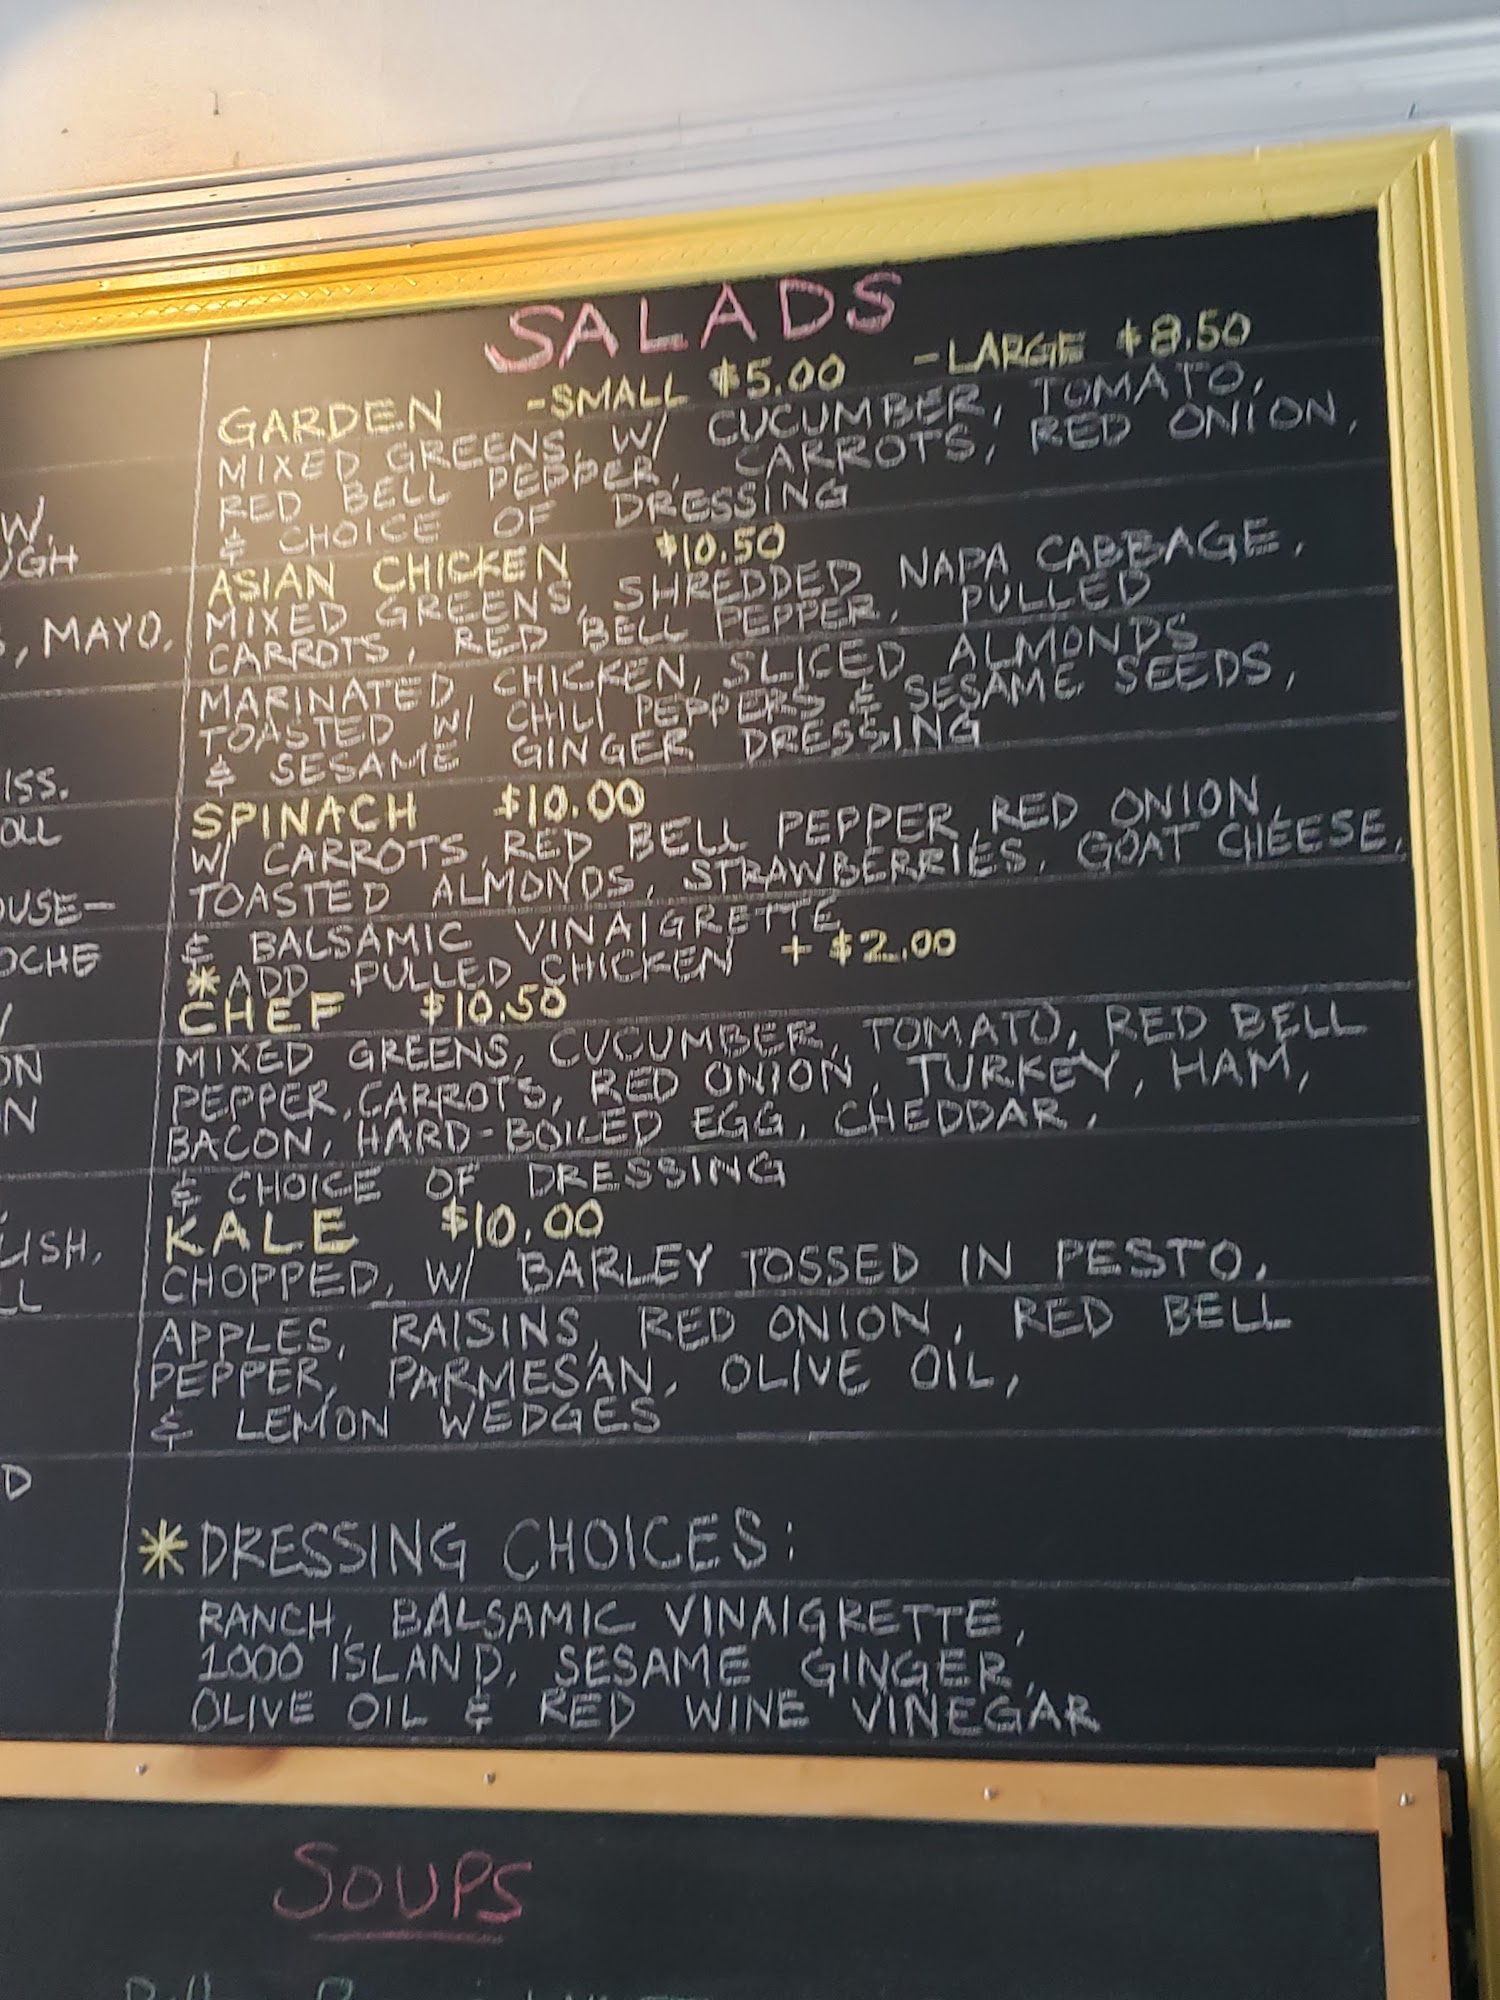 SALADS
GARDEN -SMALL $5.00 -LARGE $8.50
MIXED GREENS, W/ CUCUMBER, TOMATO,
RED BELL PEPPER, CARROTS, RED ONION,
& CHOICE OF DRESSING
ASIAN CHICKEN $10.50
MIXED GREENS, SHREDDED NAPA CABBAGE,
CARROTS, RED BELL PEPPER, PULLED
MARINATED CHICKEN, SLICED ALMONDS
TOASTED W/ CHILI PEPPERS & SESAME SEEDS,
& SESAME GINGER DRESSING
SPINACH $10.00
W/ CARROTS, RED BELL PEPPER, RED ONION,
TOASTED ALMONDS, STRAWBERRIES, GOAT CHEESE,
& BALSAMIC VINAIGRETTE
*ADD PULLED CHICKEN + $2.00
CHEF $10.50
MIXED GREENS, CUCUMBER, TOMATO, RED BELL
PEPPER, CARROTS, RED ONION, TURKEY, HAM,
BACON, HARD-BOILED EGG, CHEDDAR,
& CHOICE OF DRESSING
KALE $10.00
CHOPPED, W/ BARLEY TOSSED IN PESTO,
APPLES, RAISINS, RED ONION, RED BELL
PEPPER, PARMESAN, OLIVE OIL,
& LEMON WEDGES
*DRESSING CHOICES:
RANCH, BALSAMIC VINAIGRETTE,
1000 ISLAND, SESAME GINGER,
OLIVE OIL & RED WINE VINEGAR
MAYO,
SOUPS